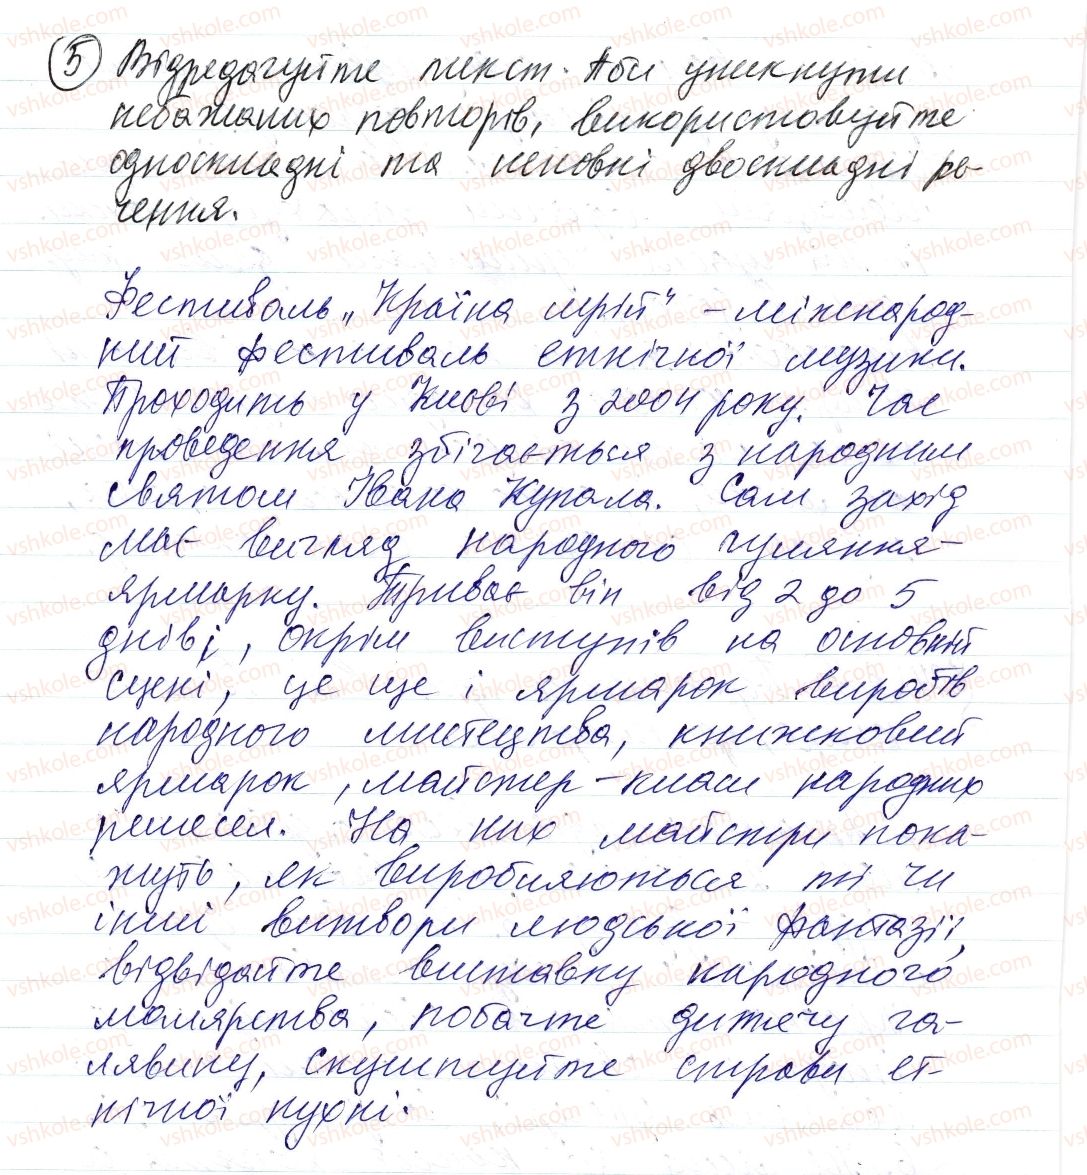 5 Відредагуйте текст. Аби уникнути
небажаних повторів, використовуйте
односкладні та неповні двоскладні ре-
чення.
Фестиваль „Країна мрій" – міжнарод-
ний фестиваль етнічної музики.
Проходить у Києві з 2004 року. Час
проведення збігається з народним
святом Івана Купала. Сам захід
має вигляд народного гуляння-
ярмарку. Триває він від 2 до 5
днів і, окрім виступів на основній
сцені, це ще і ярмарок виробів
народного мистецтва, книжковий
ярмарок, майстер-класи народних
ремесел. На них майстри пока-
жуть, як виробляються ті чи
інші витвори людської фантазії,
відвідайте виставку народного
малярства, побачте дитячу га-
лявину, скуштуйте страви ет-
нічної кухні.